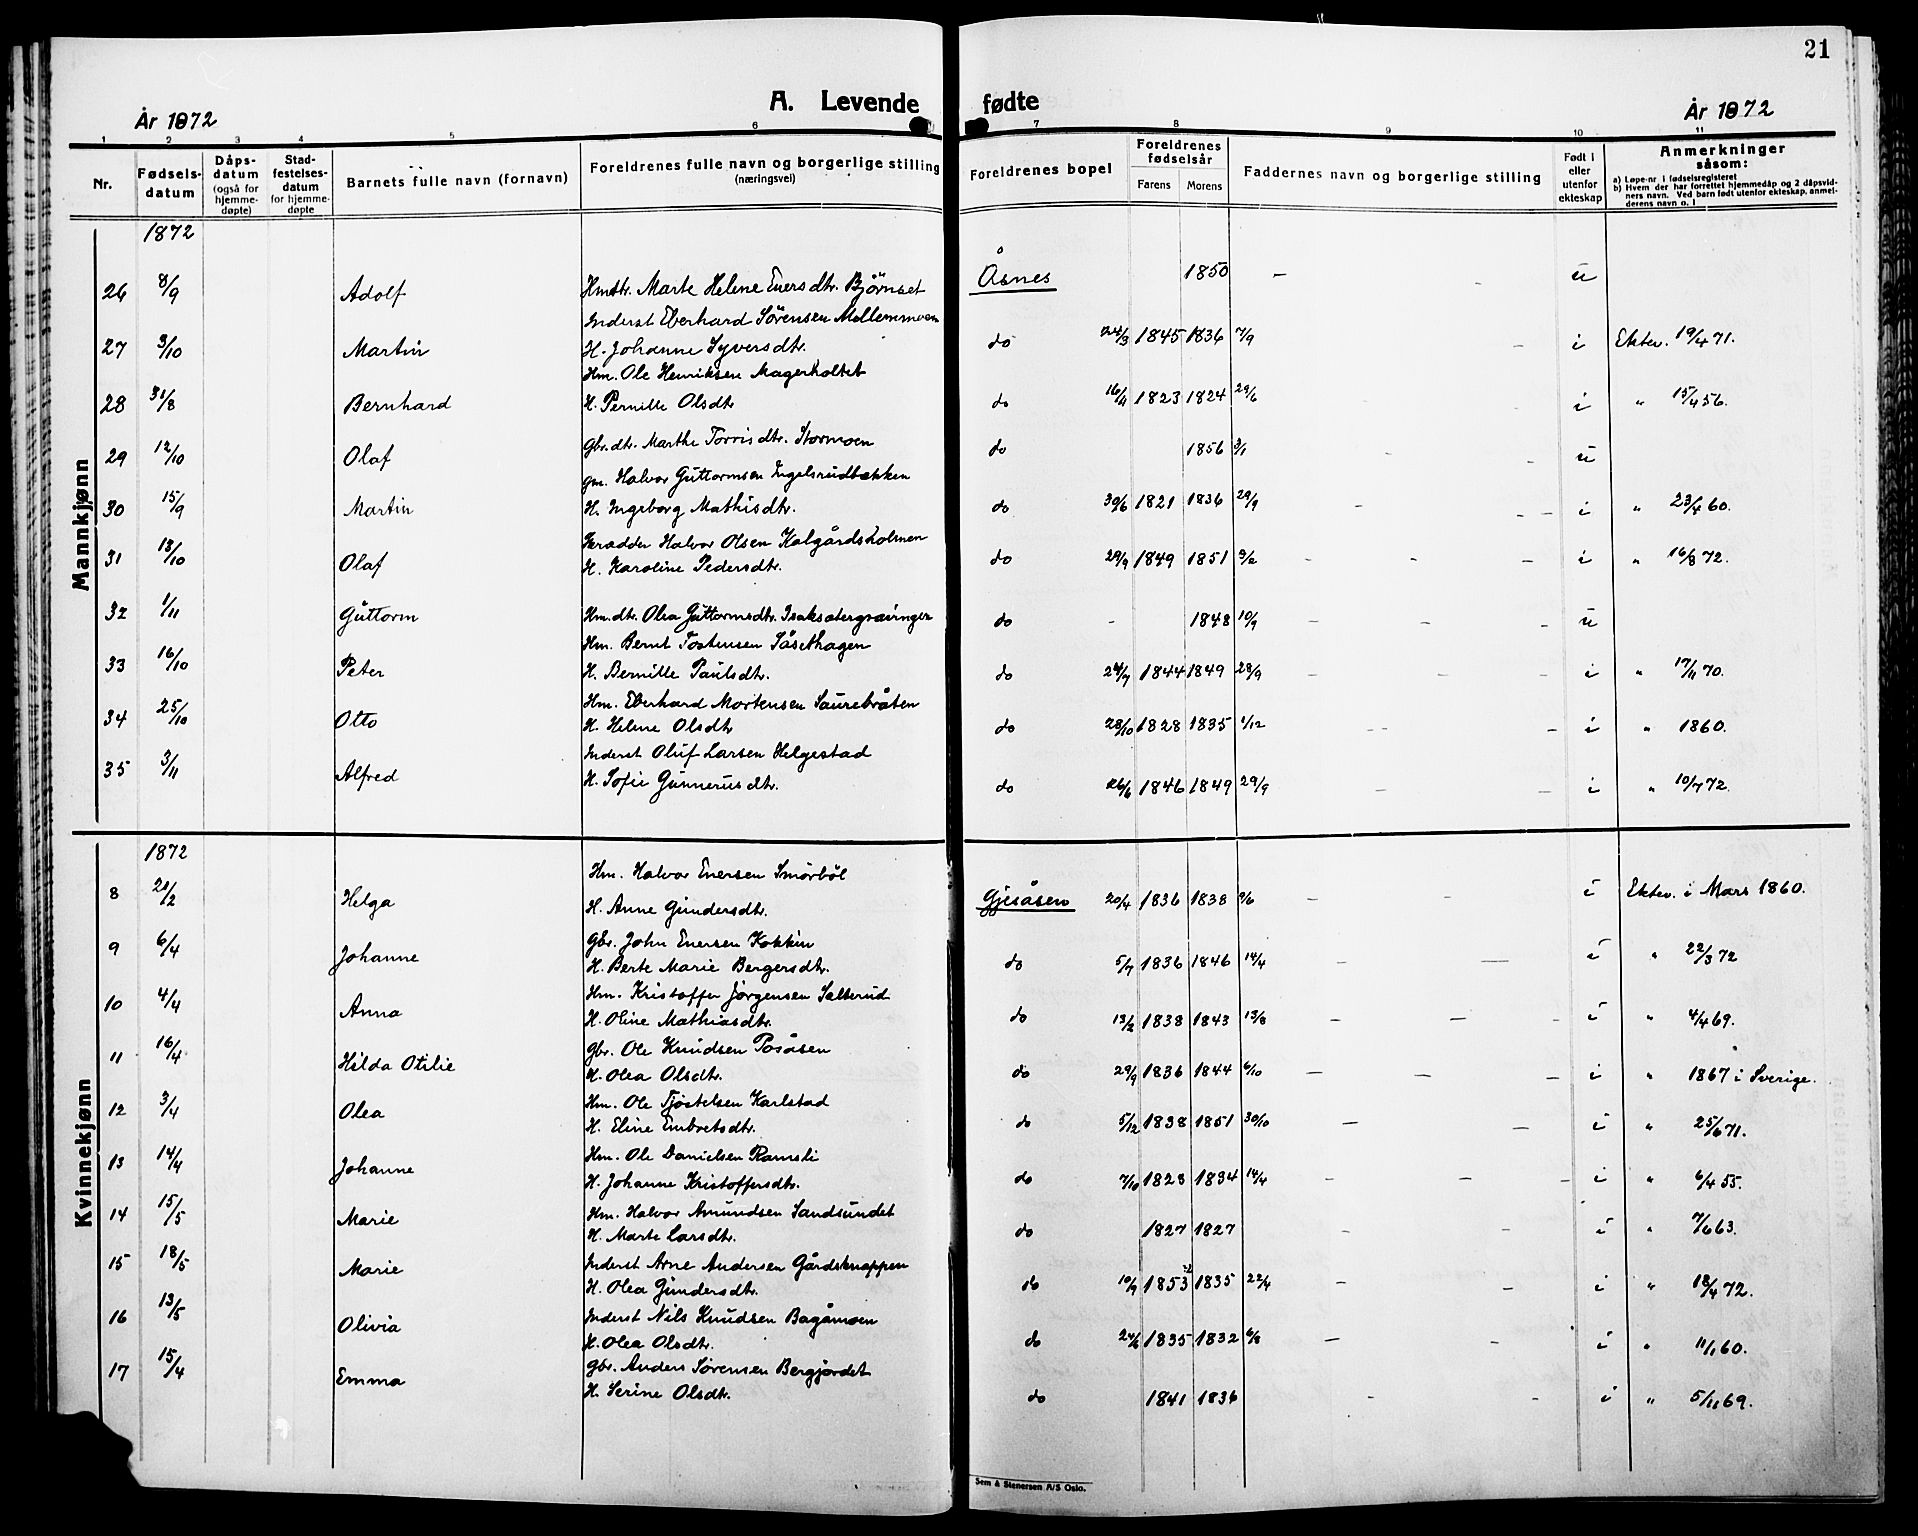 21
A. Levende fødte
År 1872
År 1872
1 2 3 4 5 6 7 8 9 10 11
Nr. Fødsels-datum Dåps-datum (også for hjemme-døpte) Stad-festelses-datum for hjemme-døpte Barnets fulle navn (fornavn) Foreldrenes fulle navn og borgerlige stilling (næringsvei) Foreldrenes bopel Foreldrenes fødselsår Farens Morens Faddernes navn og borgerlige stilling Født i eller utenfor ekteskap Anmerkninger såsom: a) Løpe-nr i fødselsregisteret b) Hvem der har forrettet hjemmedåp og 2 dåpsvidners navn. Ved barn født utenfor ekteskap, anmelderens navn o. l
Mannkjønn
1872
26 8/9 Adolf Hmdtr. Marte Helene Enersdtr. Bjørnset Åsnes 1850 – - ü
Inderst Eberhard Sørensen Mellemmoen
27 3/10 Martin H. Johanne Syversdtr. do 24/3 1845 1836 7/9 – i Ektev. 19/4 71.
Hm. Ole Henriksen Magerholtet
28 31/8 Bernhard H. Pernille Olsdtr do 16/11 1823 1824 29/6 – i " 15/4 56.
29 12/10 Olaf Gbr.dtr. Marthe Torrisdtr. Stormoen do 1856 3/1 - – ü
gm. Halvor Guttormsen Ingelsrudbækken
30 15/9 Martin H. Ingeborg Mathisdtr. do 30/6 1821 1836 29/9 – – – i " 23/4 60.
Snedder Halvor Olsen Kalgårdsholmen
31 13/10 Olaf H. Karoline Pedersdtr. do 29/9 1849 1851 9/2 – - – i " 16/8 72.
32 1/11 Güttorm Hm.dtr. Olea Güttormsdtr. Isaksætergræninger do - 1848 10/9 – – – ü
Hm. Bernt Tostensen Såsethagen
33 16/10 Peter H. Bernille Paulsdtr. do 24/7 1844 1849 28/9 – – – i " 17/11 70.
Hm. Eberhard Mortensen Saurebråten
34 25/10 Otto H. Helene Olsdtr do 28/10 1828 1835 1/12 - - – i " 1860.
Inderst Oluf Larsen Helgestad
35 3/11 Alfred H. Sofie Gunnerusdtr. do 26/6 1846 1849 29/9 – – i " 10/7 72.
Kvinnekjønn
1872
Hm. Halvor Enersen Smörböl
8 21/2 Helga H. Anne Gundersdtr. Gjesåsen 20/4 1836 1838 9/6 – – i Ektev. i Mars 1860.
9 6/4 Johanne Gbr. John Enersen Kokkin
H. Berte Marie Bergersdtr. do 5/7 1836 1846 14/4 – — i " 22/3 72
10 4/4 Anna Hm. Kristoffer Jørgensen Sætterud
H. Oline Mathiasdtr. do 13/2 1838 1843 13/8 – – - i " 4/4 69.
11 16/4 Hilda Otilie Gbr. Ole Knudsen Posåsen
H. Olea Olsdtr. do 29/9 1836 1844 6/10 – – – i " 1867 i Sverige.
12 3/4 Olea Hm. Ole Tjøstelsen Karlstad
H. Eline Embretsdtr. do 5/12 1838 1851 30/10 – – i " 25/6 71.
13 14/4 Johanne Hm. Ole Danielsen Ramsli
H. Johanne Kristoffersdtr. do 7/10 1823 1834 14/4 – – – i " 6/4 55.
14 15/5 Marie Hm. Halvor Amundsen Sandsundet
H. Marte Larsdtr. do 1827 1827 – - i " 7/6 63.
15 18/5 Marie Inderst Arne Andersen Gårdsknappen
H. Olea Gundersdtr. do 10/9 1853 1835 22/4 – – i " 18/4 72.
16 13/5 Olivia Inderst Nils Knudsen Bagåmoen
H. Olea Olsdtr. do 24/6 1835 1832 6/8 – – i " 11/1 60.
17 15/4 Emma Gbr. Anders Sørensen Bergjordet
H. Serine Olsdtr. do 1841 1836 - – i " 5/11 69.
Sem & Stenersen A/S Oslo.